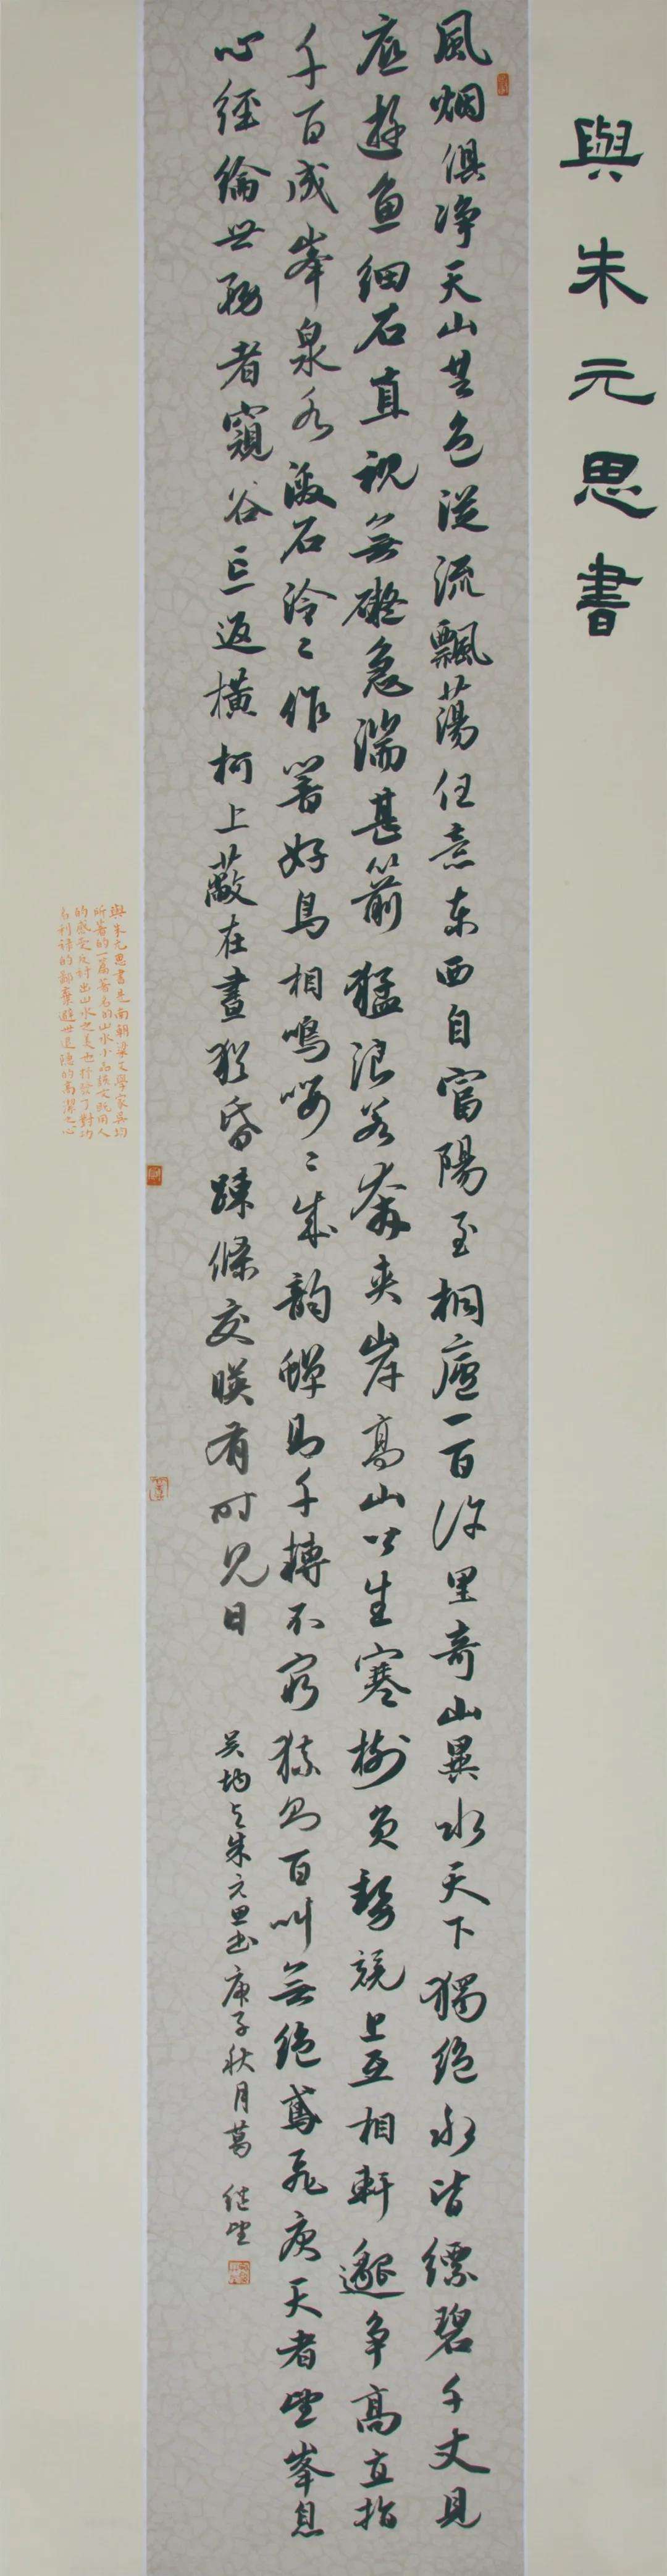 與朱元思書
風烟俱净天山共色從流飄蕩任意東西自富陽至桐廬一百许里奇山異水天下獨絕水皆縹碧千丈見
底遊魚細石直視無礙急湍甚箭猛浪若奔夾岸高山皆生寒樹負勢競上互相軒邈争高直指
千百成峯泉水激石泠〻作響好鳥相鳴嚶〻成韵蟬則千轉不窮猿則百叫無絕鳶飛戾天者望峯息
心經綸世務者窺谷忘返橫柯上蔽在晝猶昏疎條交映有時見日
吴均与朱元思书 庚子秋月葛 继望
與朱元思書是南朝梁文學家吴均
所著的一篇著名的山水小品該文既用人
的感受反衬出山水之美也抒發了對功
名利禄的鄙棄避世退隐的高潔之心